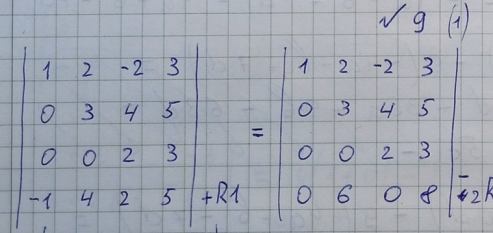 √ 9 (1)
| 1 2 -2 3 | | 1 2 -2 3 |
| 0 3 4 5 | | 0 3 4 5 |
| 0 0 2 3 | = | 0 0 2 3 |
| -1 4 2 5 | +R1 | 0 6 0 8 | -2R